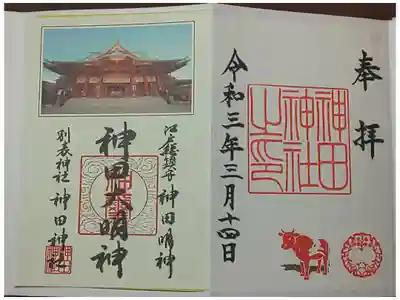 奉拝
神田
神社
之印
令和三年三月十四日
江戸総鎮守 神田明神
神田大明神
別表神社 神田神社